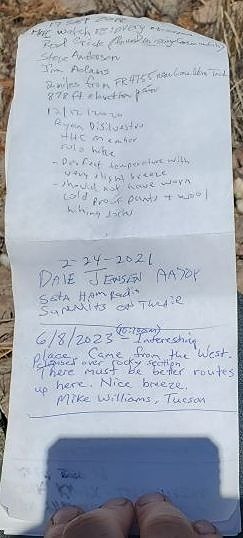 17 Sept 2012
Steve Anderson
Jim Adams
2 miles from FR4755
878 ft elevation gain
12/12/2020
Ryan DiSilvestro
HHC member
solo hike
- Perfect temperature with
very slight breeze
- should not have worn
cold proof pants + wool
hiking socks
2-24-2021
DALE JENSEN AA7OY
SOTA HAM Radio
SUMMITS ON THE AIR
(10:10am)
6/8/2023 - Interesting
place. Came from the West.
slopes over rocky section
There must be better routes
up here. Nice breeze.
Mike Williams, Tucson